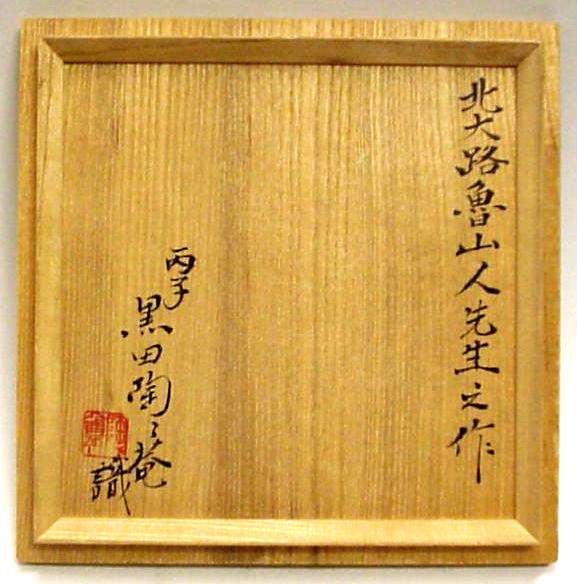 北大路魯山人先生之作
丙子
黒田陶々菴
識